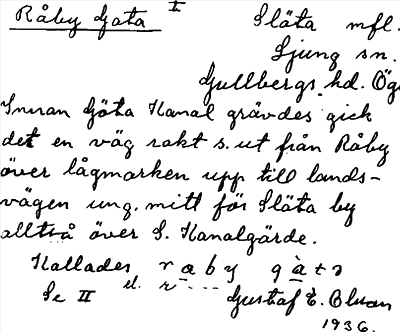 Råby Gata I
Släta mfl.
Ljung sn.
Gullbergs hd. Ög
Innan Göta Kanal grävdes gick
det en väg rakt s. ut från Råby
över lågmarken upp till lands-
vägen ung. mitt för Släta by
alltså över S. Kanalgärde.
Kallades raby gàta
el. r
Se II
Gustaf E. Olsson
1936.